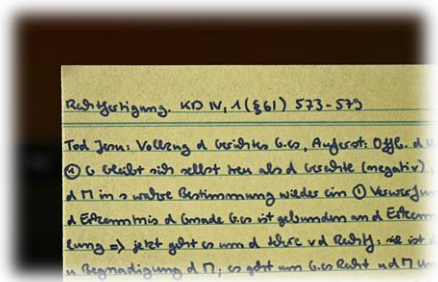 Rechtfertigung. KD IV, 1 (§61) 573-579
Tod Jesu: Vollzug d Gerichtes G.es, Auferst: Offb. d
① G bleibt sich selbst treu als d Gerechte (negativ),
d M in s wahre Bestimmung wieder ein ① Verwerfung
d Erkenntnis d Gnade G.es ist gebunden an d Erkenn
=> jetzt geht es um d Lehre v d Rechtf; sie ist d
u Begnadigung d M; es geht um G.es Recht u d M